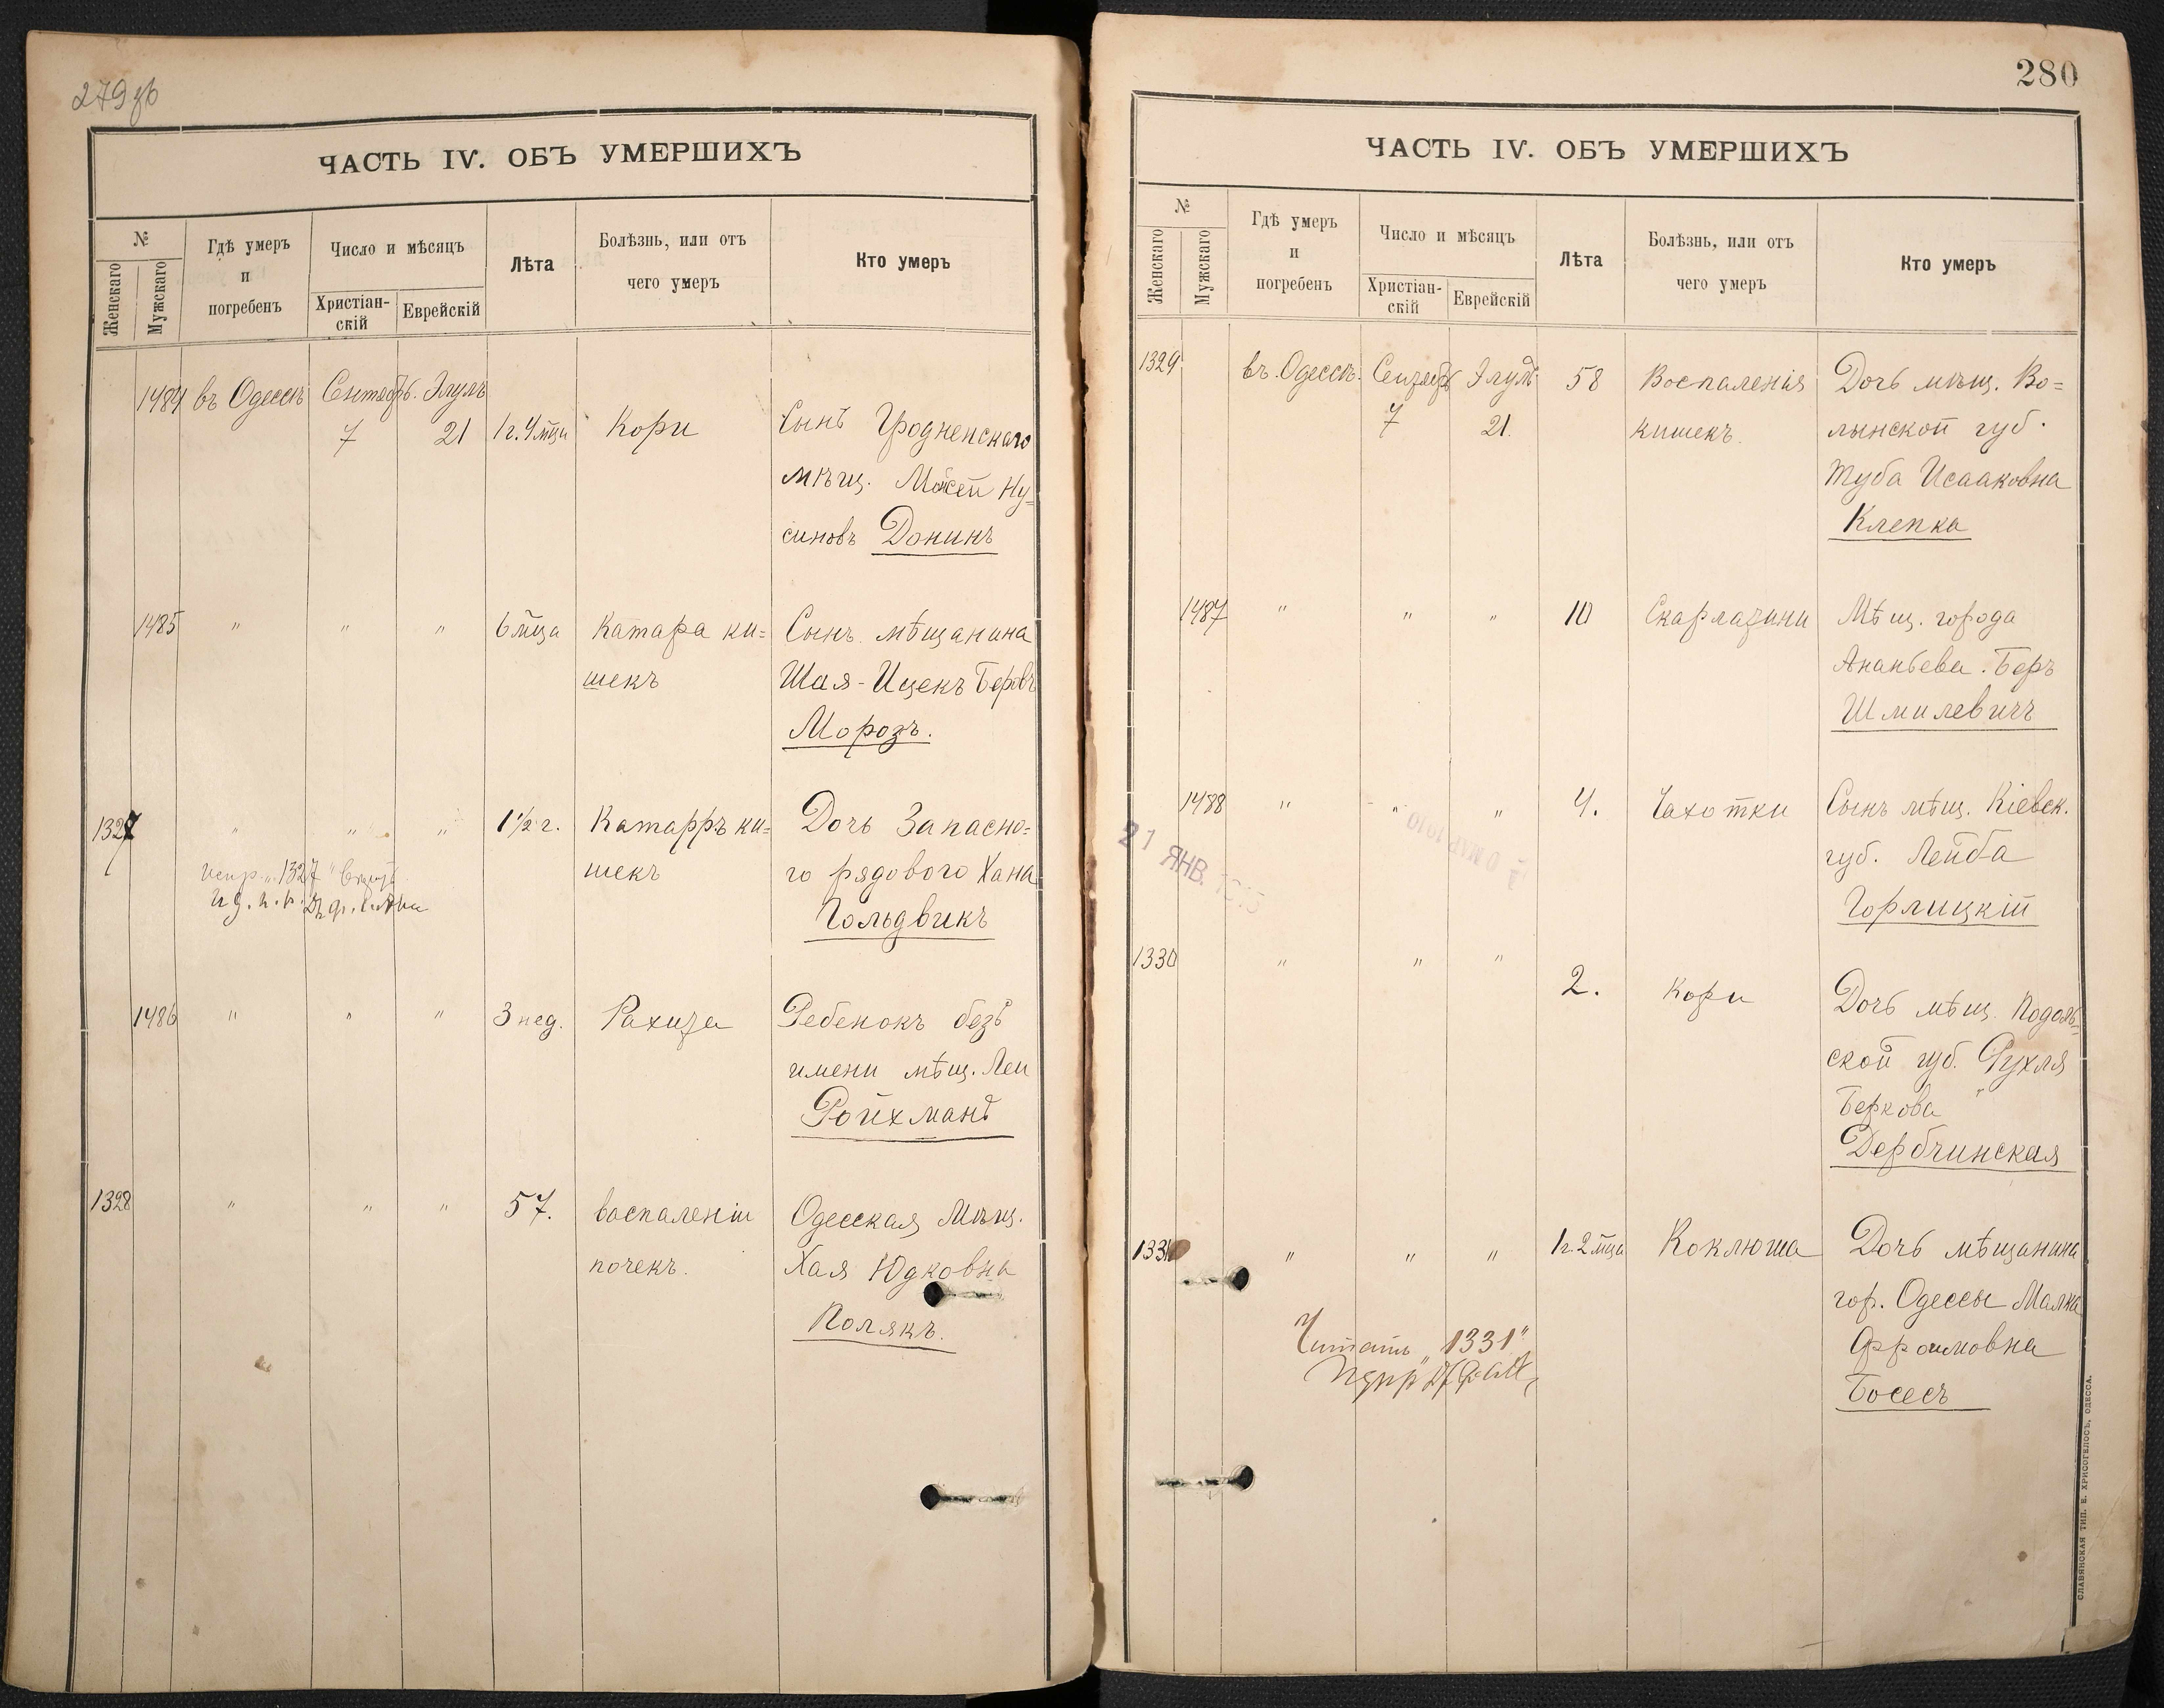 279 об
ЧАСТЬ IV. ОБЪ УМЕРШИХЪ
№
Женскаго
Мужскаго
Гдѣ умеръ
и
погребенъ
Число и мѣсяцъ
Христіан-
скій
Еврейскій
Лѣта
Болѣзнь, или отъ
чего умеръ
Кто умеръ
1484 въ Одессѣ Сентябр. Элулъ
7 21 1 г. 4 м̃ци Кори Сынъ Гродненскаго
мѣщ. Мосей Ну-
синовъ Донинъ
1485 " " " 6 м̃ца Катара ки= Сынъ мѣщанина
шекъ Шая-Ицекъ Беровъ
Морозъ.
1327 " " " 1½ г. Катарръ ки= Дочь Запасно=
шекъ го рядового Хана
Гольдвикъ
испр. „1327"
1486 " " " 3 нед. Рахита Ребенокъ безъ
имени мѣщ. Леи
Ройхманъ
1328 " " " 57. воспаленіи Одесская Мѣщ.
почекъ. Хая Юдковна
Полякъ.
280
ЧАСТЬ IV. ОБЪ УМЕРШИХЪ
№
Женскаго
Мужскаго
Гдѣ умеръ
и
погребенъ
Число и мѣсяцъ
Христіан-
скій
Еврейскій
Лѣта
Болѣзнь, или отъ
чего умеръ
Кто умеръ
1329 въ Одессѣ. Сентябр Элулъ 58 Воспаленія Дочь мѣщ. Во=
7 21. кишекъ. лынской губ.
Туба Исааковна
Клепка
1487 " " " 10 Скарлатини Мѣщ. города
Ананьева. Беръ
Шмилевичъ
1488 " " " 4. Чахотки Сынъ мѣщ. Кіевск.
губ. Лейба
Горлицкій
21 ЯНВ.
1330 " " "
2. Кори Дочь мѣщ. Подоль-
ской губ. Рухля
Беркова
Дербчинская
1331 " " " 1 г. 2 м̃ца Коклюша Дочь мѣщанина
гор. Одессы Малка
Фроимовна
Босесъ
Читать „1331"
СЛАВЯНСКАЯ ТИП. Е. ХРИСОГЕЛОСЪ, ОДЕССА.